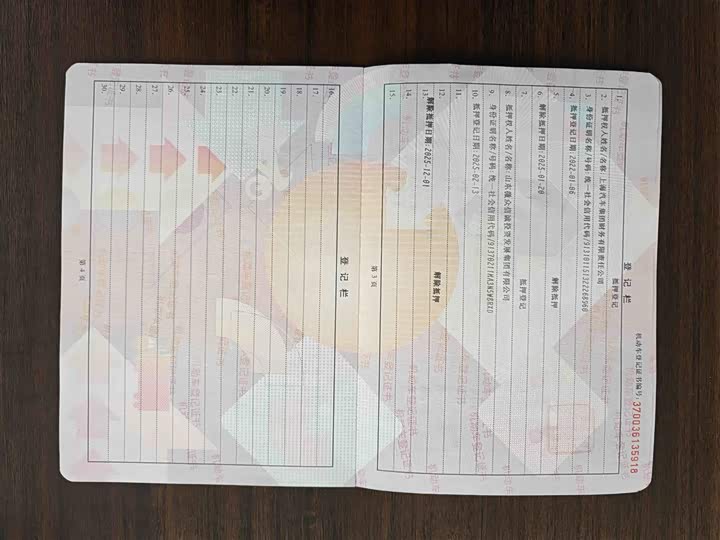 机动车登记证书编号: 370036135918
登 记 栏
1. 抵押登记
2. 抵押权人姓名/名称:上海汽车集团财务有限责任公司
3. 身份证明名称/号码:统一社会信用代码/913101151322268960
4. 抵押登记日期:2022-01-06
5. 解除抵押
6. 解除抵押日期:2025-01-20
7. 抵押登记
8. 抵押权人姓名/名称:山东微众信诚投资发展集团有限公司
9. 身份证明名称/号码:统一社会信用代码/
10. 抵押登记日期:2025-02-13
11.
12. 解除抵押
13. 解除抵押日期:2025-12-01
14.
15.
第 3 页
登 记 栏
16.
17.
18.
19.
20.
21.
22.
23.
24.
25.
26.
27.
28.
29.
30.
第 4 页